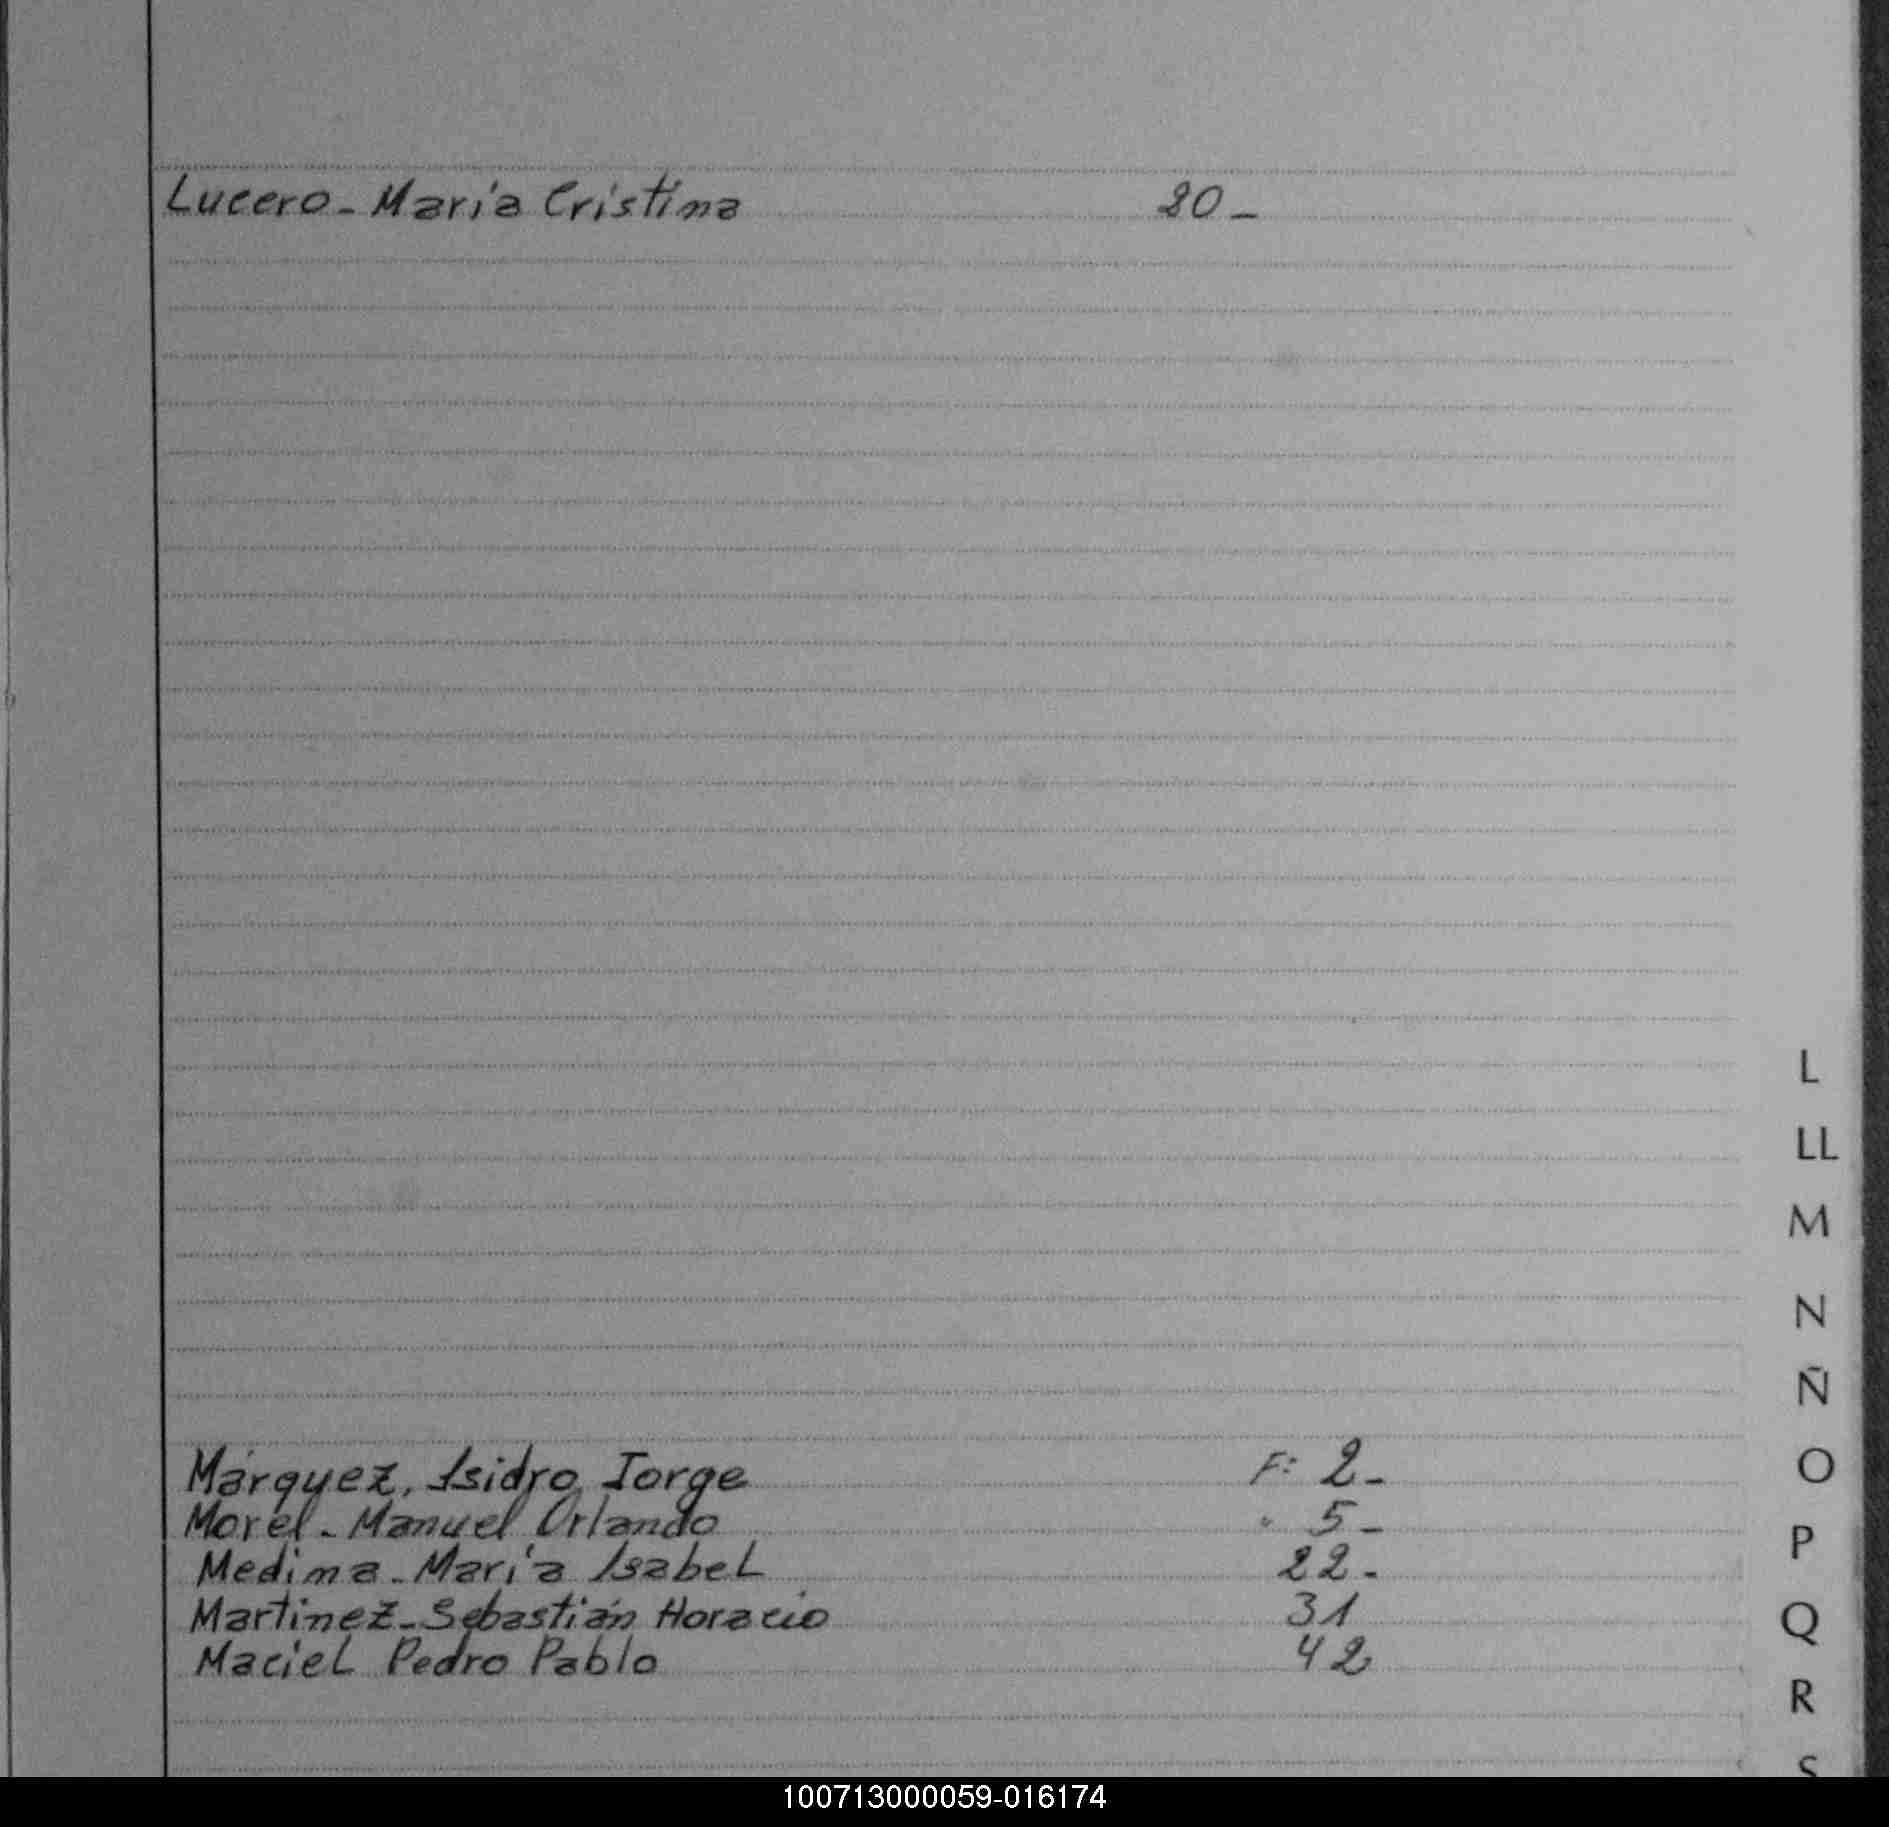 Lucero - María Cristina 20 -
L
LL
M
N
Ñ
O
P
Q
R
S
Márquez, Isidro Jorge F: 2 -
Morel - Manuel Orlando " 5 -
Medina - María Isabel 22 -
Martinez - Sebastián Horacio 31
Maciel Pedro Pablo 42
100713000059-016174